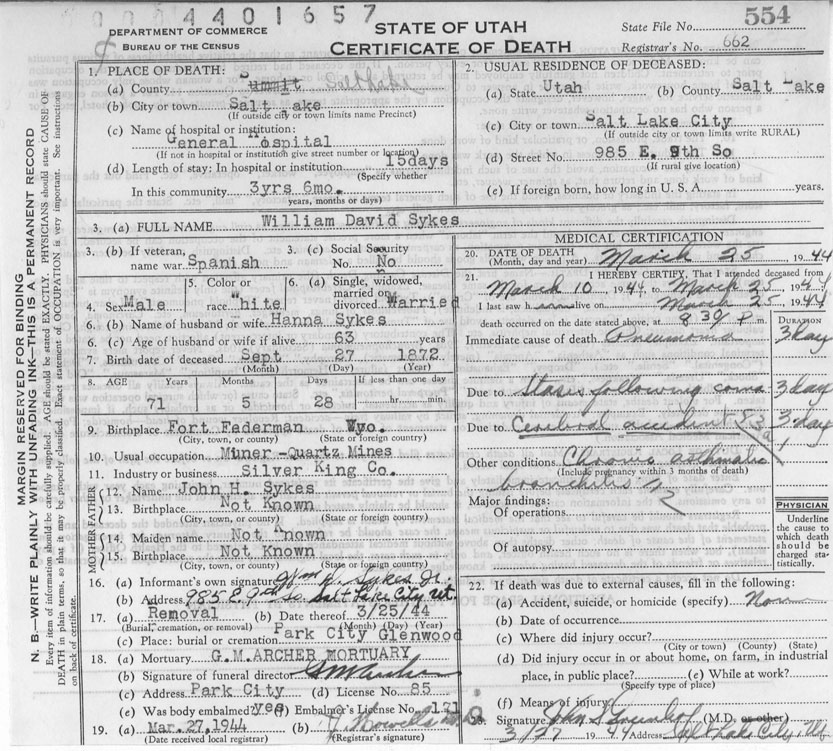 0004401657
DEPARTMENT OF COMMERCE
BUREAU OF THE CENSUS
STATE OF UTAH
CERTIFICATE OF DEATH
State File No. 554
Registrar's No. 662
MARGIN RESERVED FOR BINDING
N. B.—WRITE PLAINLY WITH UNFADING INK—THIS IS A PERMANENT RECORD
Every item of information should be carefully supplied. AGE should be stated EXACTLY. PHYSICIANS should state CAUSE OF
DEATH in plain terms, so that it may be properly classified. Exact statement of OCCUPATION is very important. See instructions
on back of certificate.
1. PLACE OF DEATH:
(a) County Summit Salt Lake
(b) City or town Salt Lake
(If outside city or town limits name Precinct)
(c) Name of hospital or institution:
General Hospital
(If not in hospital or institution give street number or location)
(d) Length of stay: In hospital or institution 15days
(Specify whether
In this community 3yrs 6mo.
years, months or days)
2. USUAL RESIDENCE OF DECEASED:
(a) State Utah (b) County Salt Lake
(c) City or town Salt Lake City
(If outside city or town limits write RURAL)
(d) Street No. 985 E. 9th So
(If rural give location)
(e) If foreign born, how long in U. S. A. years.
3. (a) FULL NAME William David Sykes
3. (b) If veteran, name war Spanish
3. (c) Social Security No. No
4. Sex Male
5. Color or race White
6. (a) Single, widowed, married or divorced Married
6. (b) Name of husband or wife Hanna Sykes
6. (c) Age of husband or wife if alive 63 years
7. Birth date of deceased Sept 27 1872
(Month) (Day) (Year)
8. AGE Years Months Days If less than one day
71 5 28 hr. min.
9. Birthplace Fort Federman Wyo.
(City, town, or county) (State or foreign country)
10. Usual occupation Miner -Quartz Mines
11. Industry or business Silver King Co.
FATHER
12. Name John H. Sykes
13. Birthplace Not Known
(City, town, or county) (State or foreign country)
MOTHER
14. Maiden name Not Known
15. Birthplace Not Known
(City, town, or county) (State or foreign country)
16. (a) Informant's own signature Wm H. Sykes Jr.
(b) Address 985 E 9th So. Salt Lake City Ut.
17. (a) Removal (b) Date thereof 3/25/44
(Burial, cremation, or removal) (Month) (Day) (Year)
(c) Place: burial or cremation Park City Glenwood
18. (a) Mortuary G.M.ARCHER MORTUARY
(b) Signature of funeral director GM Archer
(c) Address Park City (d) License No. 85
(e) Was body embalmed? yes (f) Embalmer's License No. 171
19. (a) Mar. 27,1944 (b)
(Date received local registrar) (Registrar's signature)
MEDICAL CERTIFICATION
20. DATE OF DEATH March 25 1944
(Month, day and year)
21. I HEREBY CERTIFY, That I attended deceased from
March 10, 1944, to March 25, 1944
I last saw him alive on March 25 1944
death occurred on the date stated above, at 8 30 P m.
DURATION
Immediate cause of death Pneumonia 3 day
Due to Stasis following coma 3 day
Due to Cerebral accident 83a 3 day
Other conditions Chronic asthmatic
(Include pregnancy within 3 months of death)
bronchitis
Major findings:
Of operations
Of autopsy
PHYSICIAN
Underline
the cause to
which death
should be
charged sta-
tistically.
22. If death was due to external causes, fill in the following:
(a) Accident, suicide, or homicide (specify) None
(b) Date of occurrence
(c) Where did injury occur?
(City or town) (County) (State)
(d) Did injury occur in or about home, on farm, in industrial
place, in public place? (e) While at work?
(Specify type of place)
(f) Means of injury
23. Signature (M.D. or other)
3/27 1944 Address Salt Lake City, Ut